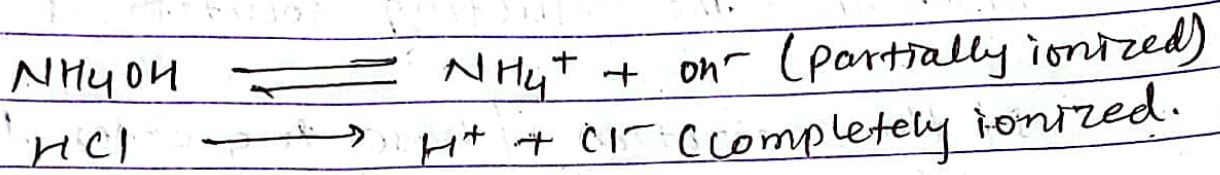 NH4OH ⇌ NH4+ + oh- (partially ionized)
HCl ⟶ H+ + Cl- (completely ionized.